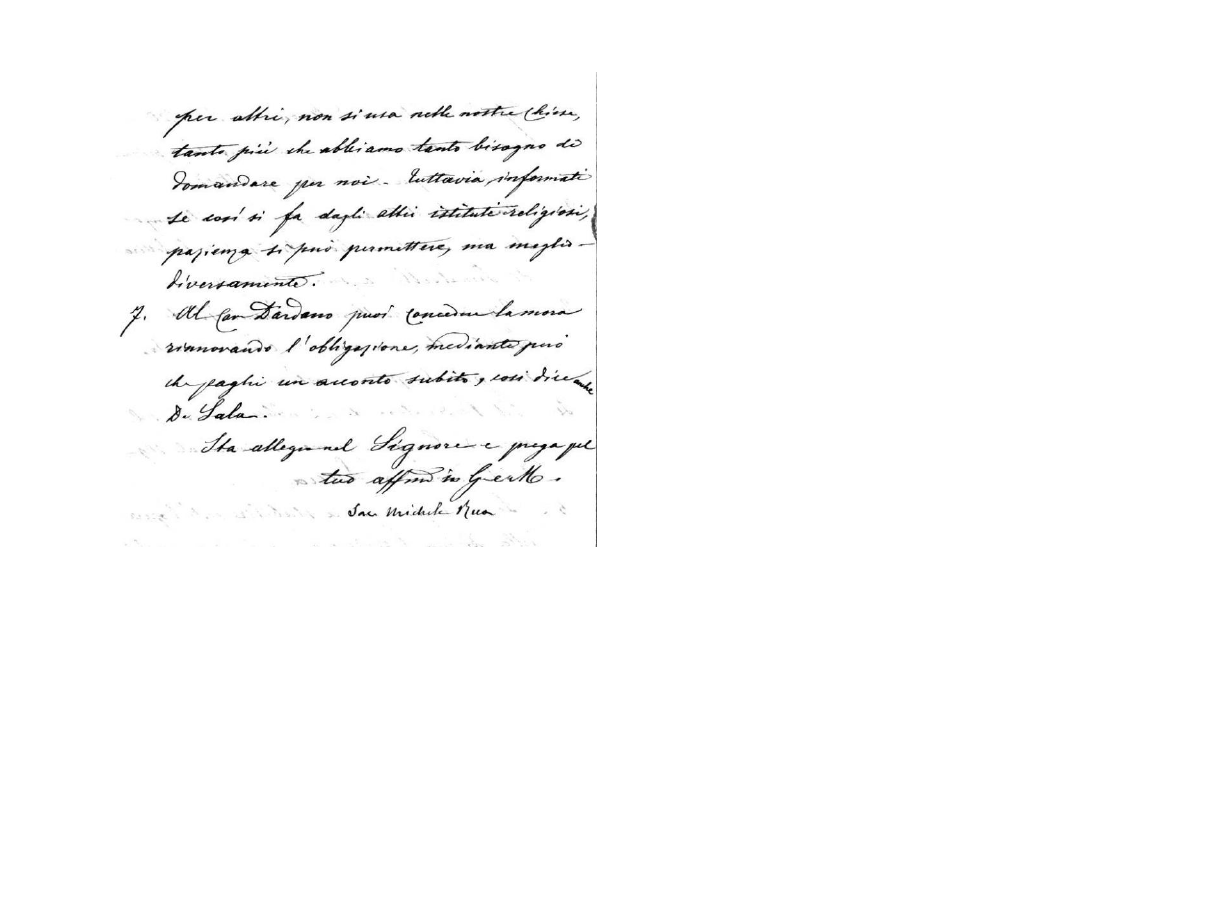 per altri, non si usa nelle nostre Chiese,
tanto più che abbiamo tanto bisogno di
domandare per noi - Tuttavia, informati
se così si fa dagli altri istituti religiosi,
pazienza si può permettere, ma meglio -
diversamente.
7. Al Cav Dardano puoi concedere la mora
rinnovando l'obbligazione, mediante però
che paghi un acconto subito, così dice anche
D. Sala.
Sta allegro nel Signore e prega pel
tuo affmo in G e M.
Sac Michele Rua